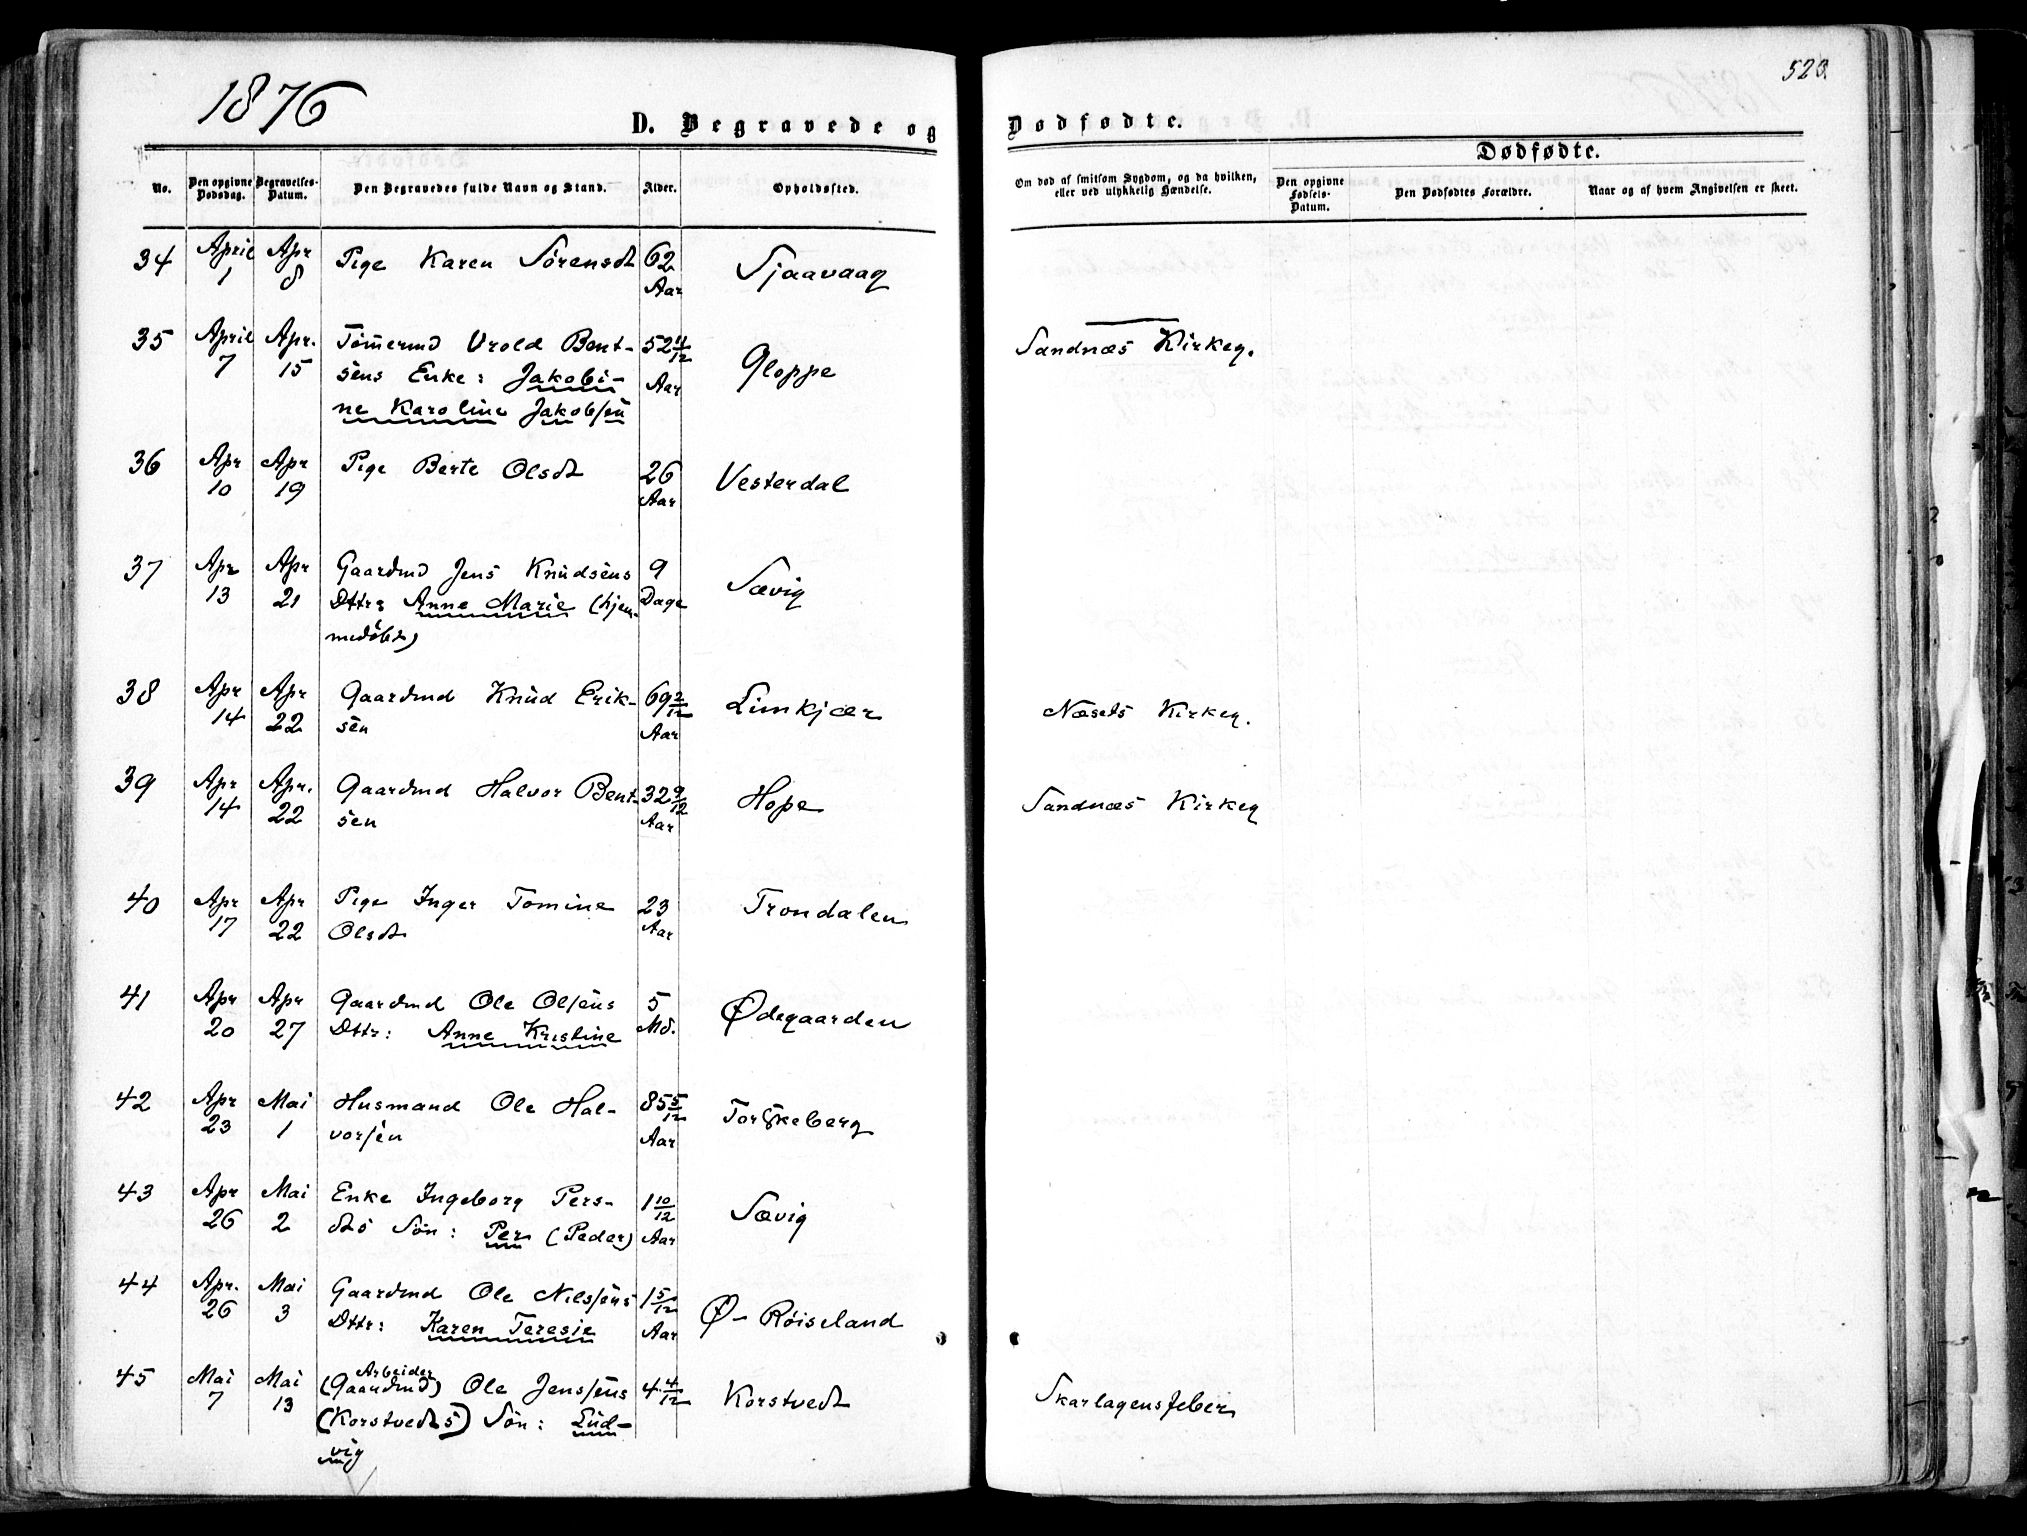 1876
523
D. Begravede og
Dødfødte.
No.
Den opgivne Dødsdag.
Begravelses-Datum.
Den Begravedes fulde Navn og Stand.
Alder.
Opholdssted.
Om død af smitsom Sygdom, og da hvilken,
eller ved ulykkelig Hændelse.
Dødfødte.
Den opgivne Fødsels-Datum.
Den Dødfødtes Forældre.
Naar og af hvem Angivelsen er skeet.
34 April 1 Apr 8 Pige Karen Sörensdt 62 Aar Sjaavaag
35 April 7 Apr. 15 Tömermd Vrold Bent- 52 11/12 Gloppe Sandnæs Kirkeg.
sens Enke: Jakobi- Aar
ne Karoline Jakobsen
36 Apr 10 Apr 19 Pige Berte Olsdt 26 Aar Vesterdal
37 Apr 13 Apr 21 Gaardmd Jens Knudsens 9 Sævig
Dttr: Anne Marie (hjem- Dage
medöbt)
38 Apr 14 Apr 22 Gaardmd Knud Erik- 69 2/12 Limkjær Næsets Kirkeg.
sen Aar
39 Apr 14 Apr. 22 Gaardmd Halvor Bent- 32 9/12 Hope Sandnæs Kirkeg
sen Aar
40 Apr 17 Apr 22 Pige Inger Tomine 23 Trondalen
Olsdt Aar
41 Apr 20 Apr 27 Gaardmd Ole Olsens 5 Ødegaarden
Dttr: Anne Kristine Md.
42 Apr 23 Mai 1 Husmand Ole Hal- 85 5/12 Torskeberg
vorsen Aar
43 Apr 26 Mai 2 Enke Ingeborg Pers- 1 10/12 Sævig
dts Sön: Per (Peder) Aar
44 Apr. 26 Mai 3 Gaardmd Ole Nilsens 1 5/12 Ø- Röiseland
Dttr: Karen Teresie Aar
Arbeider
45 Mai 7 Mai 13 (Gaardmd) Ole Jenssens 4 4/12 Korstvedt Skarlagensfeber
(Korstvedts) Sön: Lud-
vig